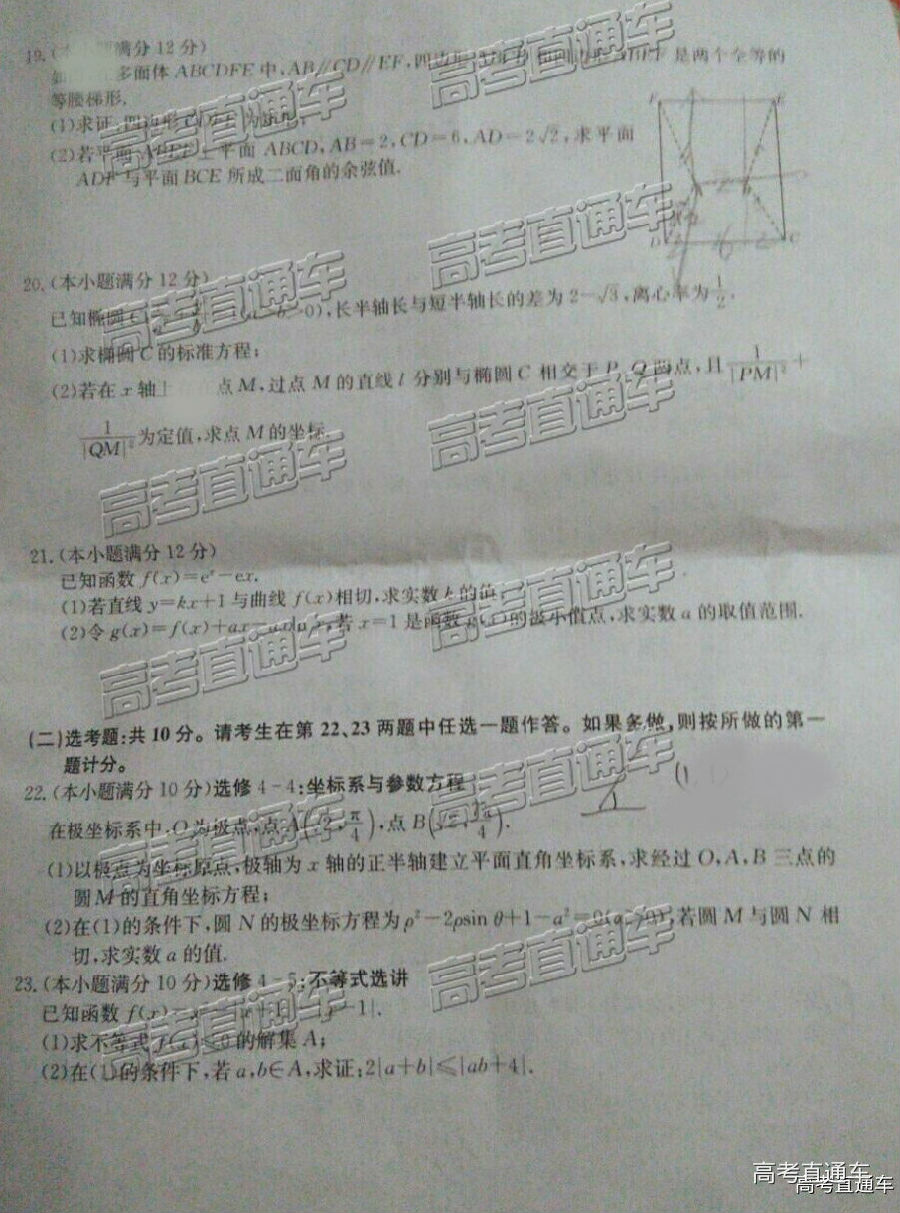 19.( 满分12分)
多面体ABCDFE中,AB∥CD∥EF,四边形 是两个全等的
等腰梯形.
(1)求证:四边形 为
(2)若平面 ⊥平面ABCD,AB=2,CD=6,AD=2√2,求平面
ADF与平面BCE所成二面角的余弦值.
D C
20.(本小题满分12分)
已知椭圆C >0),长半轴长与短半轴长的差为2-√3,离心率为1/2.
(1)求椭圆C的标准方程;
(2)若在x轴上 点M,过点M的直线l分别与椭圆C相交于P、Q两点,且1/|PM|²+
1/|QM|²为定值,求点M的坐标.
21.(本小题满分12分)
已知函数f(x)=eˣ-ex.
(1)若直线y=kx+1与曲线f(x)相切,求实数k的值
(2)令g(x)=f(x)+ax- 若x=1是函数g(x)的极小值点,求实数a的取值范围.
(二)选考题:共10分。请考生在第22、23两题中任选一题作答。如果多做,则按所做的第一
题计分。
22.(本小题满分10分)选修4-4:坐标系与参数方程
在极坐标系中,O为极点,点A( ,π/4),点B(√2, /4).
(1)以极点为坐标原点,极轴为x轴的正半轴建立平面直角坐标系,求经过O,A,B三点的
圆M的直角坐标方程;
(2)在(1)的条件下,圆N的极坐标方程为ρ²-2ρsin θ+1-a²=0(a>0),若圆M与圆N相
切,求实数a的值.
23.(本小题满分10分)选修4-5:不等式选讲
已知函数f(x)= +1 -1|.
(1)求不等式f(x)≤0的解集A;
(2)在(1)的条件下,若a,b∈A,求证:2|a+b|≤|ab+4|.
高考直通车
高考直通车
高考直通车
高考直通车
高考直通车
高考直通车
高考直通车
高考直通车
高考直通车
高考直通车
高考直通车
高考直通车
高考直通车
高考直通车